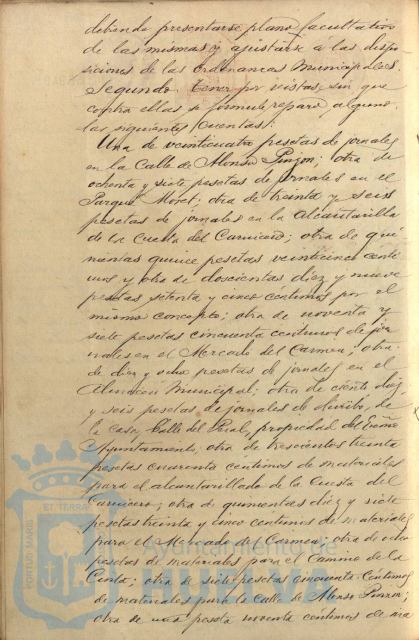 debiendo presentarse plano facultativo
de las mismas y ajustarse a las dispo
siciones de las Ordenanzas Municipales.
Segundo. Tener por vistas, sin que
contra ellas se formule reparo alguno,
las siguientes cuentas:
Una de veinticuatro pesetas de jornales
en la Calle de Alonso Pinzon; otra de
ochenta y siete pesetas de jornales en el
Parque Moret; otra de treinta y seis
pesetas de jornales en la Alcantarilla
de la Cuesta del Carnicero; otra de qui
nientas quince pesetas veinticinco cénti
mos y otra de doscientas diez y nueve
pesetas setenta y cinco céntimos por el
mismo concepto; otra de noventa y
siete pesetas cincuenta céntimos de jor
nales en el Mercado del Carmen; otra
de diez y ocho pesetas de jornales en el
Almacen Municipal; otra de ciento diez
y seis pesetas de jornales de derribo, de
la casa, Calle del propiedad del Excmo
Ayuntamiento, otra de trescientas treinta
pesetas cuarenta céntimos de materiales
para el alcantarillado de la Cuesta del
Carnicero; otra de quinientas diez y siete
pesetas treinta y cinco céntimos de materiales
para el Mercado del Carmen; otra de ocho
pesetas de materiales para el Camino de la
Cinta; otra de siete pesetas cincuenta céntimos
de materiales para la Calle de Alonso Pinzon;
otra de una peseta noventa céntimos de
PORTUS MARIS ET TERRAE
Ayuntamiento de
HUELVA